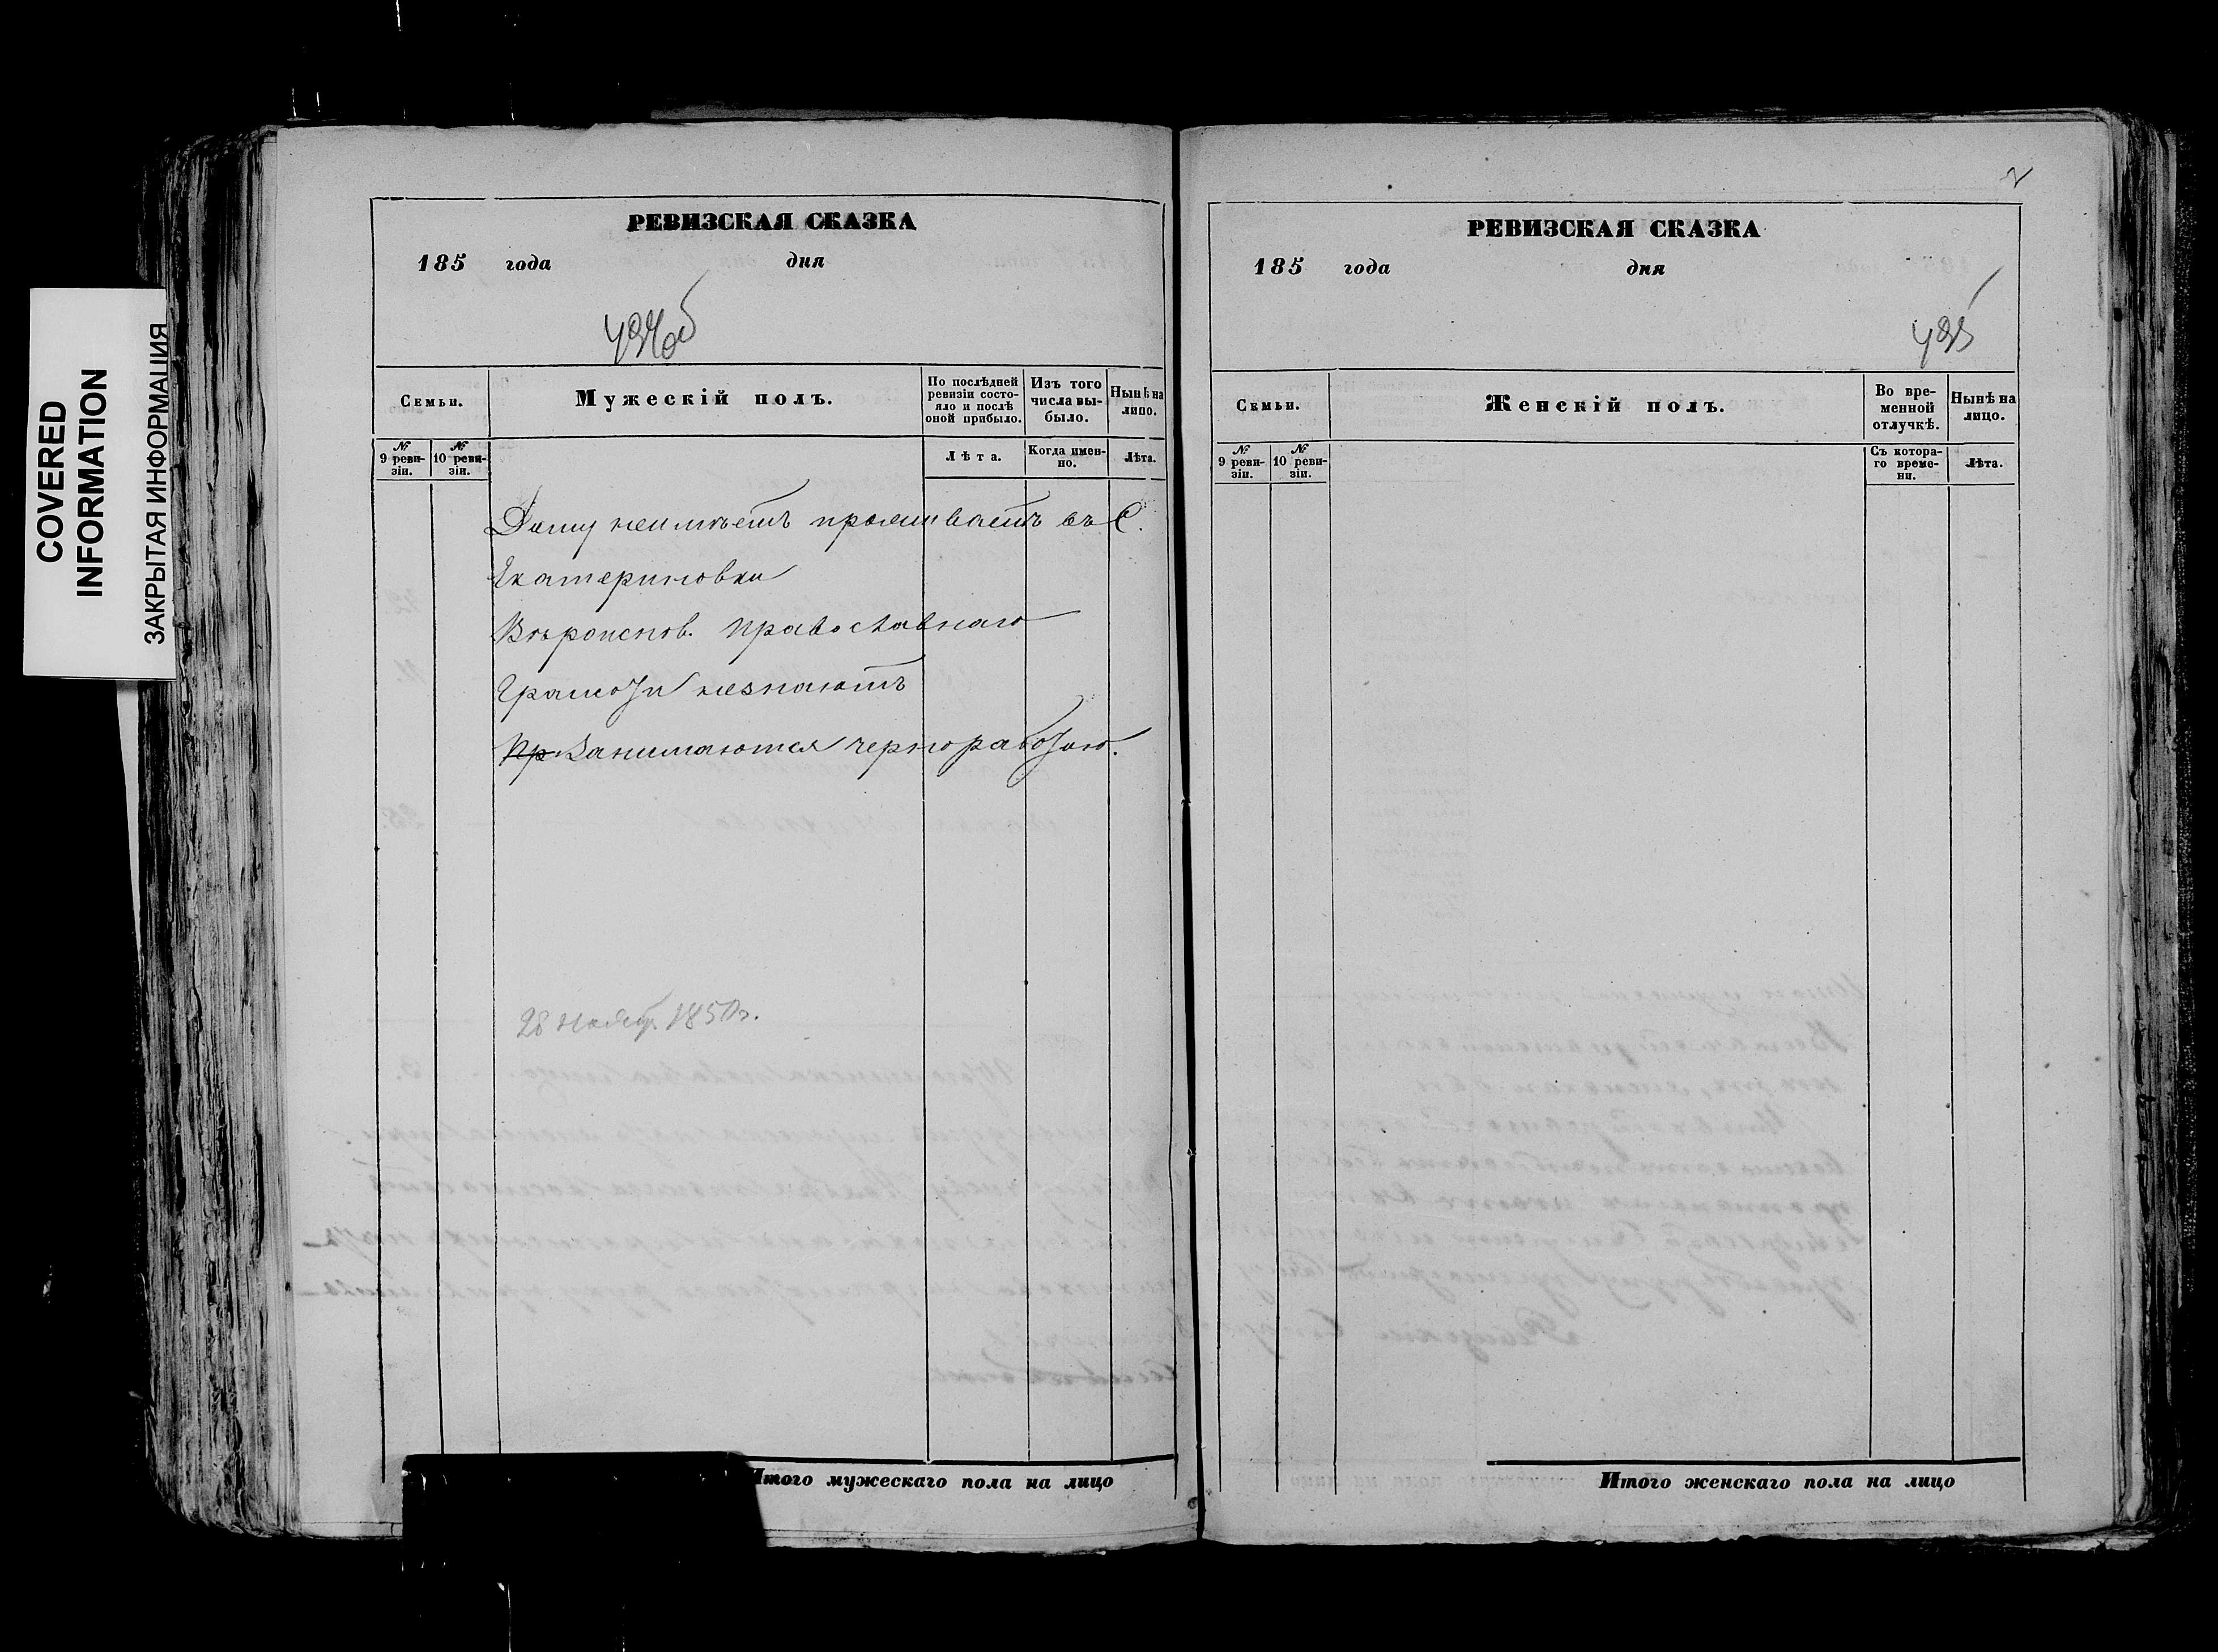 COVERED
INFORMATION
ЗАКРЫТАЯ ИНФОРМАЦИЯ
РЕВИЗСКАЯ СКАЗКА
185 года дня
494об
Семьи.
Мужескій полъ.
По послѣдней
ревизіи состо-
яло и послѣ
оной прибыло.
Изъ того
числа вы-
было.
Нынѣ на
лицо.
№
9 реви-
зіи.
№
10 реви-
зіи.
Лѣта.
Когда имен-
но.
Лѣта.
Дому неимѣетъ проживаетъ въ С.
Екатериновки
Вѣроиспов. православнаго
Грамоты незнаютъ
Пр Занимаются черноработою.
28 Ноябр. 1850г.
Итого мужескаго пола на лицо
2
РЕВИЗСКАЯ СКАЗКА
185 года дня
495
Семьи.
Женскій полъ.
Во вре-
менной
отлучкѣ.
Нынѣ на
лицо.
№
9 реви-
зіи.
№
10 реви-
зіи.
Съ котора-
го време-
ни.
Лѣта.
Итого женскаго пола на лицо